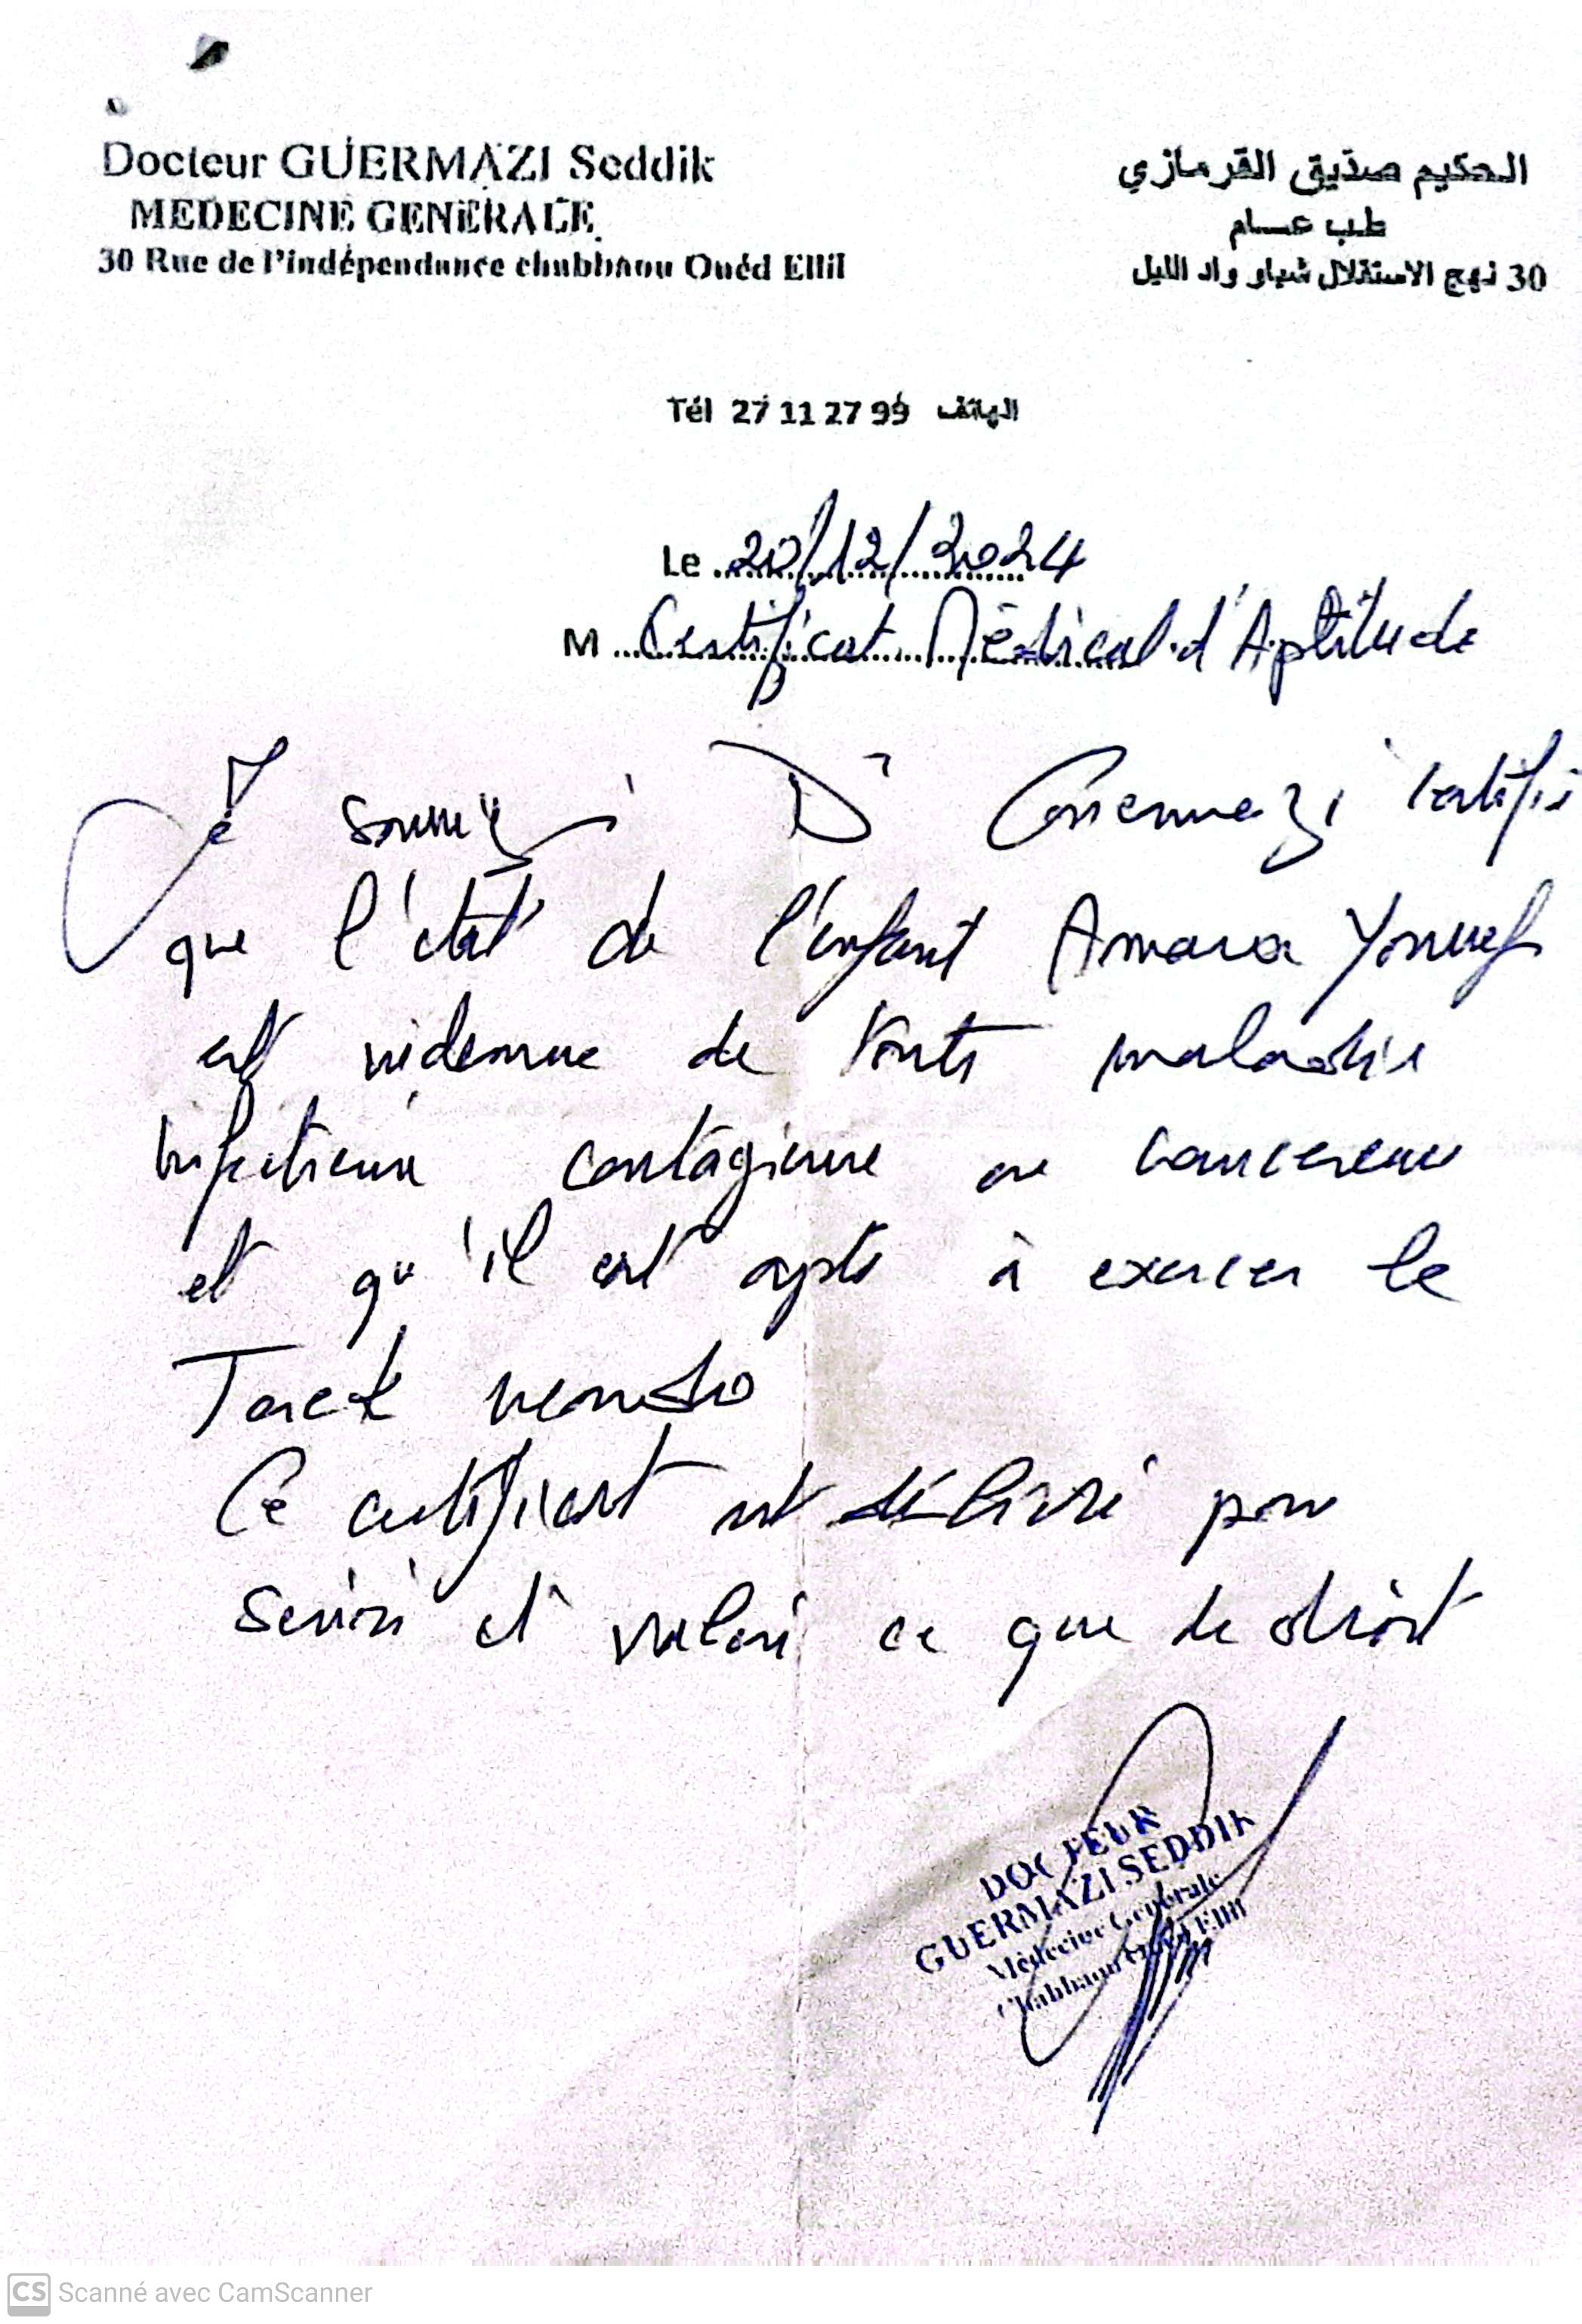 Docteur GUERMAZI Seddik
MEDECINE GENERALE
30 Rue de l'indépendance chabbaou Ouéd Ellil
الحكيم صديق القرمازي
طب عام
30 نهج الاستقلال شباو واد الليل
Tél 27 11 27 99 الهاتف
Le 20/12/2024
M Certificat Médical d'Aptitude
Je Dr Guermazi certifie
que l'état de l'enfant Amara Youssef
est de toute maladie
infectieuse contagieuse ou cancereuse
et qu'il est apte à exercer le
Ce certificat est délivré pour
servir et valoir ce que de droit
DOCTEUR
GUERMAZI SEDDIK
Médecine Générale
Chabbaou Oued Ellil
CS Scanné avec CamScanner